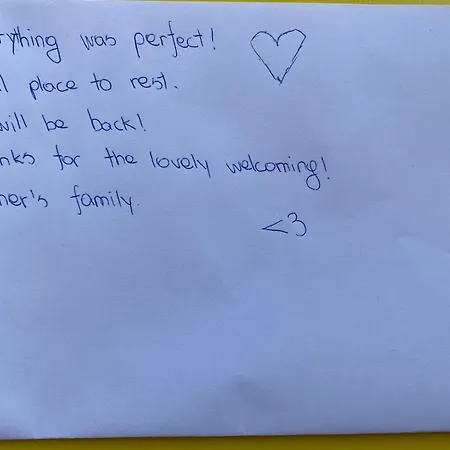 rything was perfect!
l place to rest.
will be back!
nks for the lovely welcoming!
ner's family.
<3